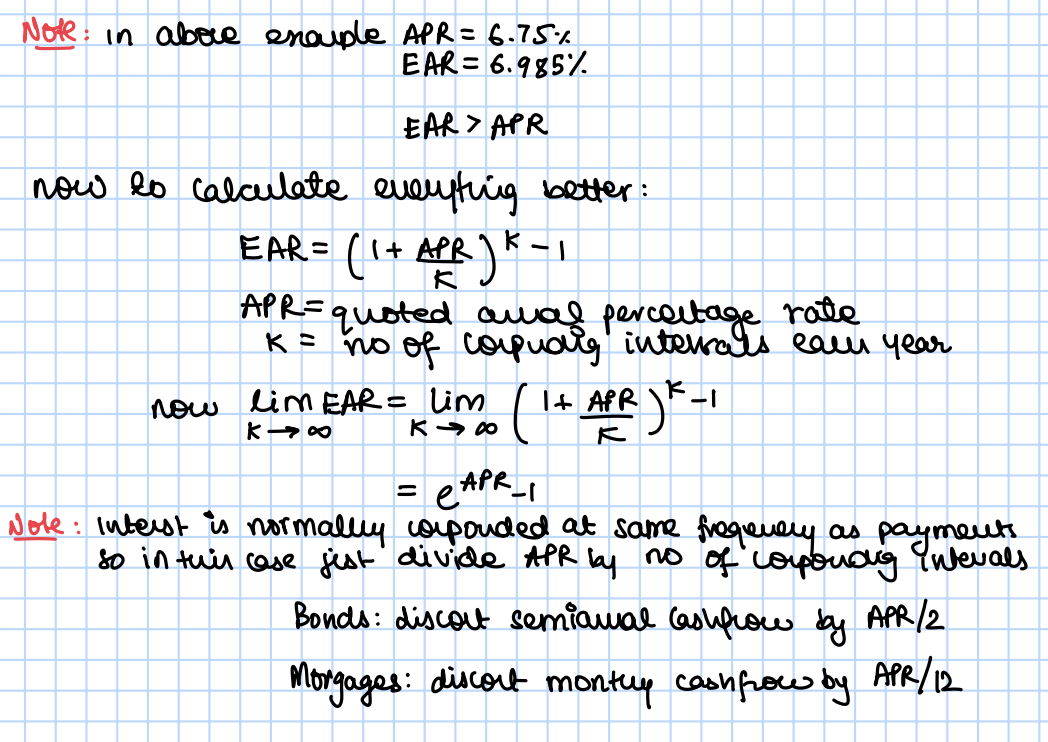 Note: in above example APR = 6.75%
EAR = 6.985%
EAR > APR
now to calculate everything better:
EAR = (1 + APR/K)^K - 1
APR = quoted annual percentage rate
K = no of compounding intervals each year
now lim K→∞ EAR = lim K→∞ (1 + APR/K)^K - 1
= e^APR - 1
Note: interest is normally compounded at same frequency as payments
so in this case just divide APR by no of compounding intervals
Bonds: discount semiannual cashflow by APR/2
Morgages: discount monthly cashflow by APR/12